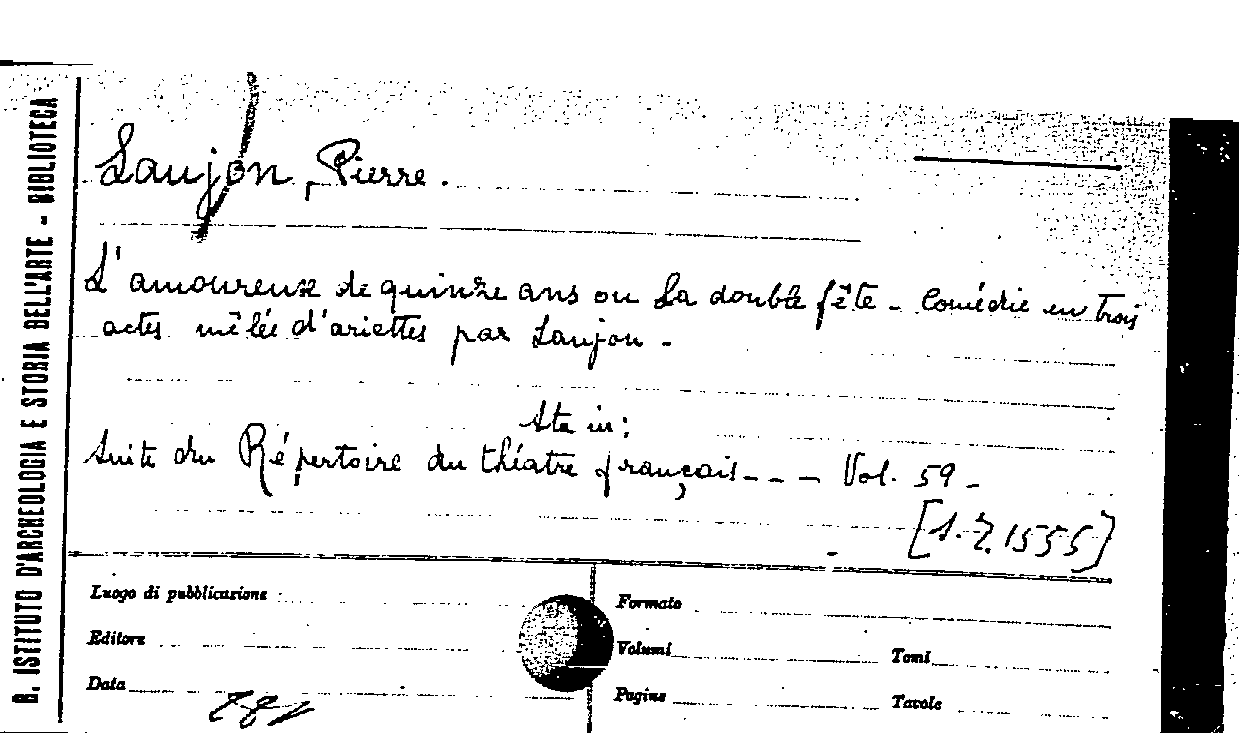 R. ISTITUTO D'ARCHEOLOGIA E STORIA DELL'ARTE - BIBLIOTECA
Laujon, Pierre.
L'amoureux de quinze ans ou La double fête - Comédie en trois
actes mêlée d'ariettes par Laujon -
Sta in:
Suite du Répertoire du théatre français - - - Vol. 59 -
Luogo di pubblicazione
Formato
Editore
Volumi
Tomi
Data
Pagine
Tavole